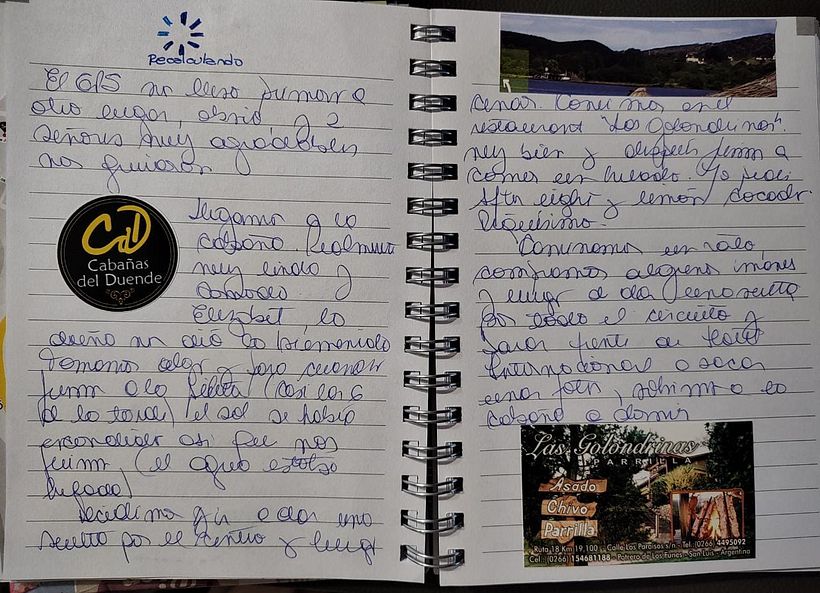 Recalculando
El GPS nos llevó primero a
otro lugar, y 2
señores muy agradables
nos guiaron
CdD
Cabañas
del Duende
Llegamos a la
cabaña. Realmente
muy lindo y
cómodo.
Elizabet, la
dueña nos dió la bienvenida
Tomamos algo y para
fuimos a la pileta (casi las 6
de la tarde) el sol se había
escondido así que nos
fuimos, (el agua estaba
helada)
Decidimos ir a dar una
vuelta por el centro y luego
cenar. Comimos en el
restaurant "Las Golondrinas".
muy bien y después fuimos a
comer un helado. Yo pedí
After eight y limón
Riquísimo.
Caminamos un rato,
compramos algunos imanes
y luego de dar una vuelta
por todo el circuito y
parar frente al Hotel
Internacional a sacar
unas fotos, subimos a la
cabaña a dormir
Las Golondrinas
PARRILLA
Asado
Chivo
Parrilla
Ruta 18 Km 19,100 - Calle Los Paraísos s/n - Tel. (0266) 4495092
Cel.: (0266) 154681188 - Potrero de Los Funes - San Luis - Argentina